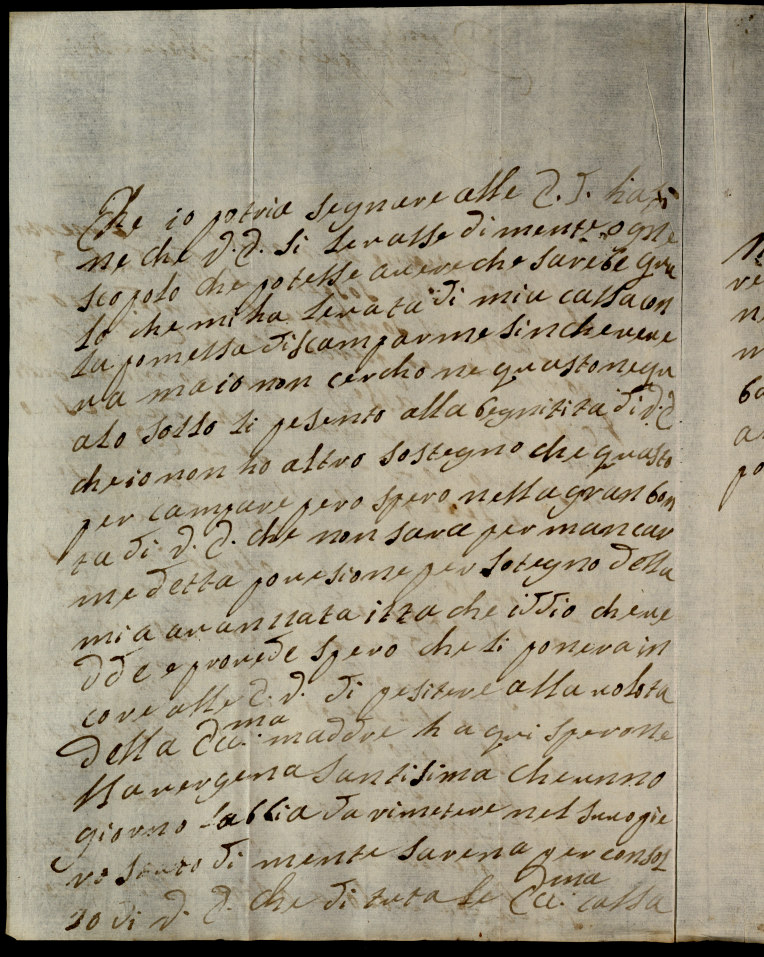 Che io potria segnare alle d. d. ha fi
ne che d. d. si levasse di mente ogne
scopolo che potesse avere che sarebe qua
lo che mi ha levata di mia cassa con
la pomessa di scamparme sin che vere
va ma io non cercho ne quasto ne qu
alo sollo li pesento alla begnitita di d. d.
che io non ho altro sostegno che quasto
per campare pero spero nella gran bon
ta di d. d. che non sara per mancar
me detta povesione per sotegno della
mia avansata itta che iddio che ve
dde e provede spero che li ponera in
core alle d. d. di pesitere alla volota
della Ca:ma maddre ha qui sperosse
lla vergena santisima che unno
giorno l'abbia da rimetere nel suo gie
ro stato di mente sarena per consol
zo di d. d. che di tuta le Ca:ma cassa